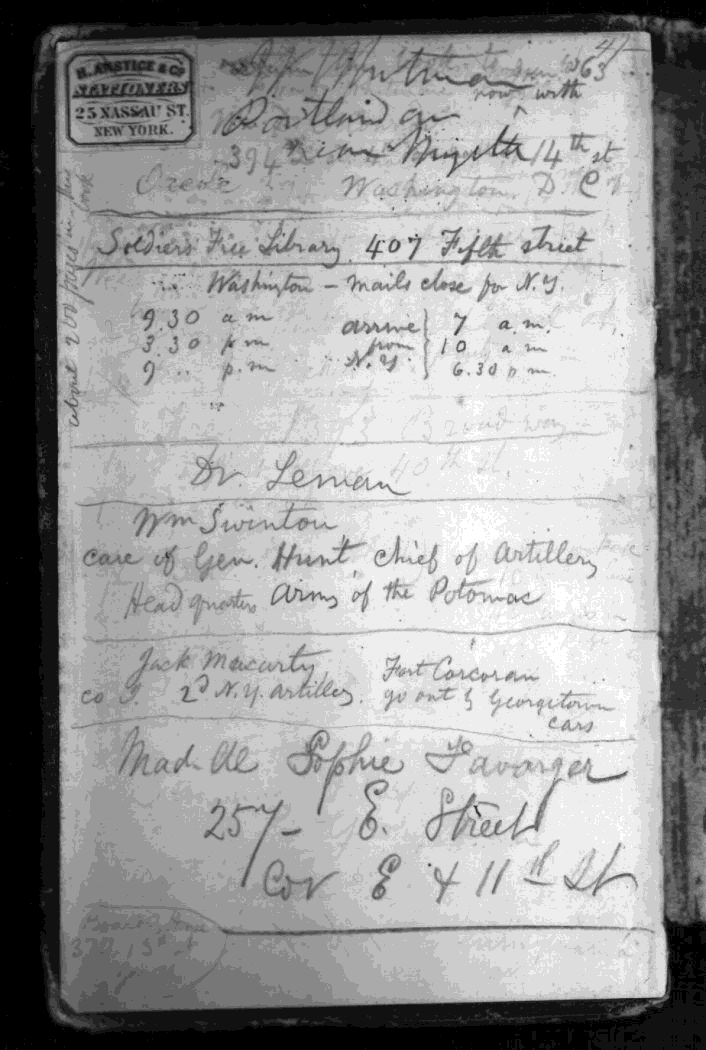 H. ANSTICE & CO
STATIONERS
25 NASSAU ST.
NEW YORK.
63
now with
Portland av
394 14th st
Washington D. C
about 200 pages in
book
Soldiers' Free Library 407 Fifth street
Washington – mails close for N.Y.
9.30 a m arrive 7 a.m.
3.30 p m from 10 a m
9 " p.m N.Y. 6.30 p m
Broadway
40th st.
Dr. Leman
Wm Swinton
care of Gen. Hunt chief of artillery
Head quarters Army of the Potomac
Jack Macarty Fort Corcoran
co 2d N.Y. artillery. go out by Georgetown
cars
Mad. de Sophie Favarger
257- E. Street
Cor E & 11th St